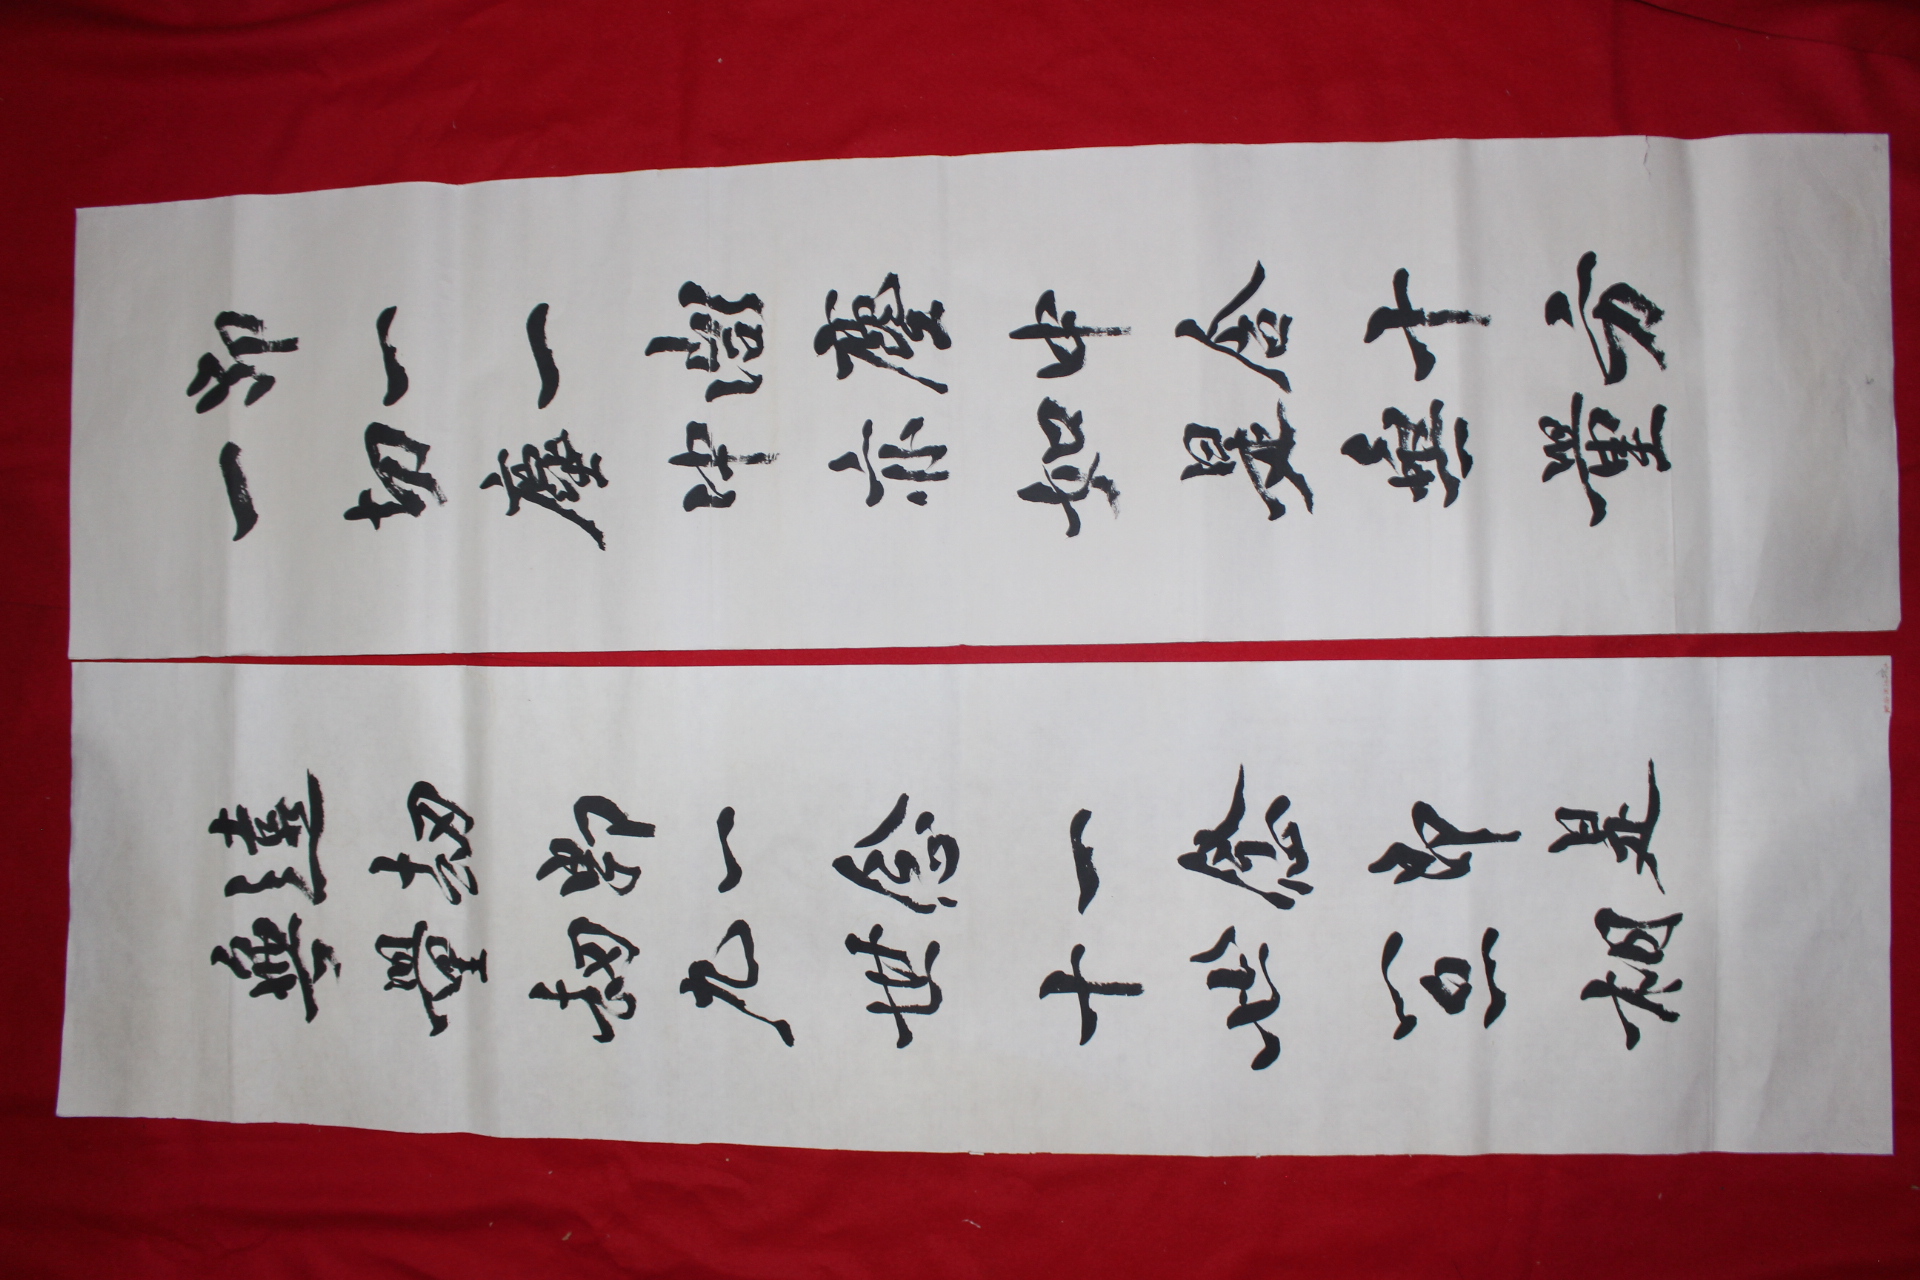 即一一微塵中含十方
一切塵中亦如是無量
遠劫即一念一念即是
無量劫九世十世互相